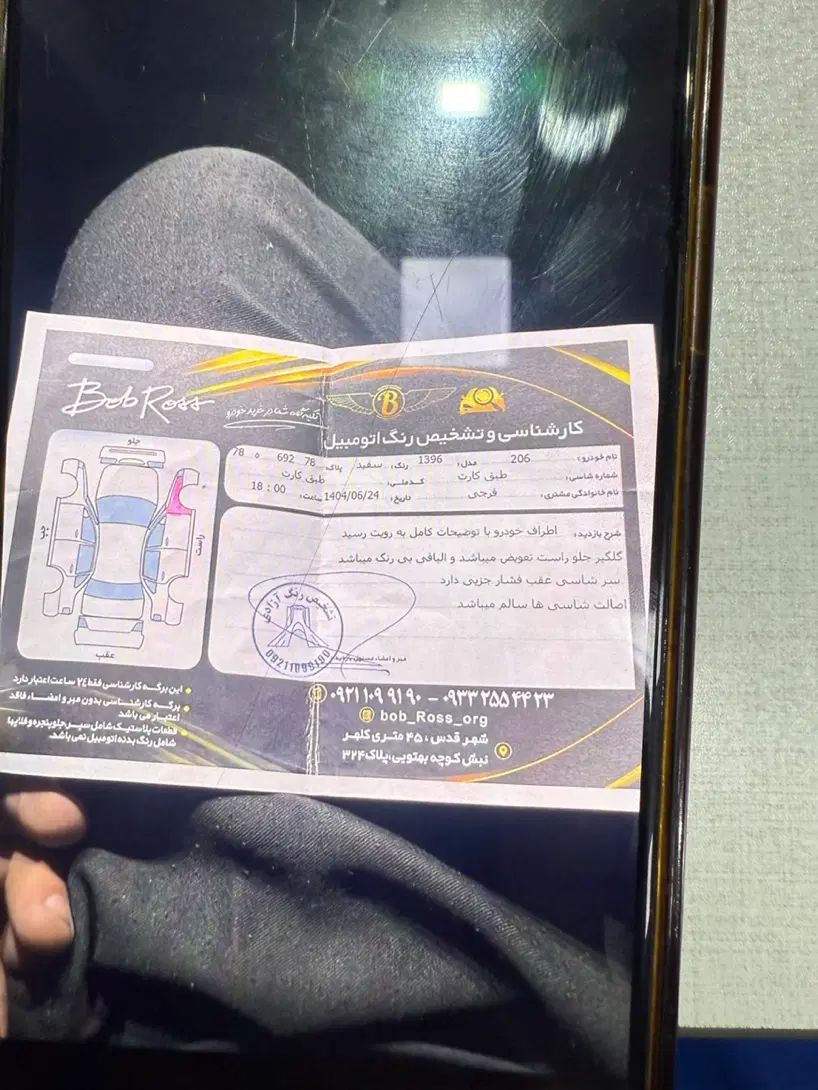 Bob Ross
تکیه گاه شما در خرید خودرو
B
کارشناسی و تشخیص رنگ اتومبیل
نام خودرو: 206 مدل: 1396 رنگ: سفید پلاک: 78 692 ه 78
شماره شاسی: طبق کارت کدملی: طبق کارت
نام خانوادگی مشتری: فرجی تاریخ: 1404/06/24 ساعت: 18:00
جلو
چپ
راست
عقب
شرح بازدید: اطراف خودرو با توضیحات کامل به رویت رسید
گلگیر جلو راست تعویض میباشد و الباقی بی رنگ میباشد
سر شاسی عقب فشار جزیی دارد
اصالت شاسی ها سالم میباشد
تشخیص رنگ آزادی
09211099190
مهر و امضاء مسئول بازدید
این برگه کارشناسی فقط ۲٤ ساعت اعتبار دارد
برگه کارشناسی بدون مهر و امضاء فاقد
اعتبار می باشد
قطعات پلاستیک شامل سپر جلو پنجره و فلاپها
شامل رنگ بدنه اتومبیل نمی باشد.
۰۹۲۱ ۱۰۹ ۹۱ ۹۰ - ۰۹۳۳ ۲۵۵ ۴۴ ۲۳
bob_Ross_org
شهر قدس، ۴۵ متری کلهر
نبش کوچه بهتویی، پلاک ۳۲۴